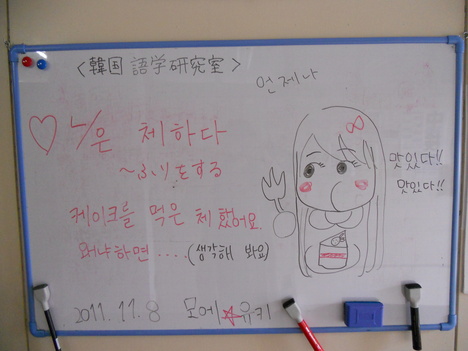 <韓国 語学研究室>
언제나
♡ ㄴ/은 체하다
~ふりをする
맛있다!!
맛있다!!
케이크를 먹은 체 했어요.
왜냐하면·····(생각해 봐요)
2011.11.8 모에☆유키